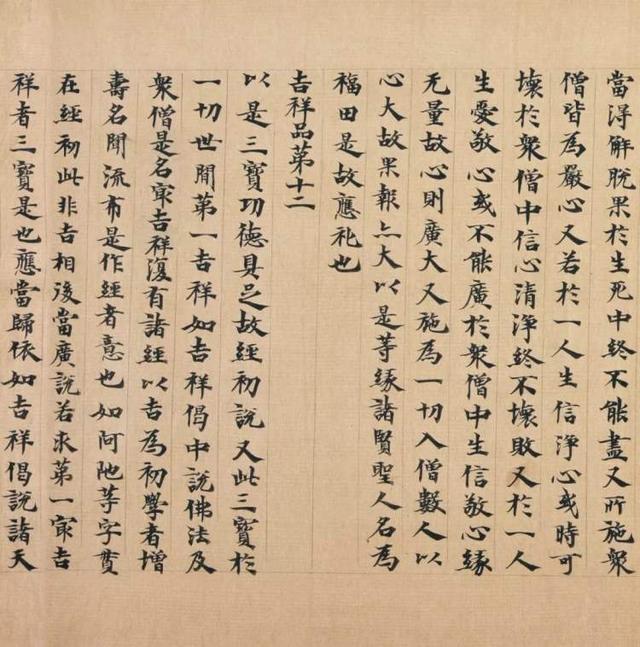 當得解脫果於生死中終不能盡又所施衆
僧皆為嚴心又若於一人生信淨心或時可
壞於衆僧中信心清淨終不壞敗又於一人
生愛敬心或不能廣於衆僧中生信敬心緣
无量故心則廣大又施為一切入僧數人以
心大故果報亦大以是等緣諸賢聖人名為
福田是故應礼也
吉祥品第十二
以是三寶功德具足故經初說又此三寶於
一切世間第一吉祥如吉祥偈中說佛法及
衆僧是名㝡吉祥復有諸經以吉為初學者增
壽名聞流布是作經者意也如阿陁等字置
在經初此非吉相後當廣說若求第一㝡吉
祥者三寶是也應當歸依如吉祥偈說諸天